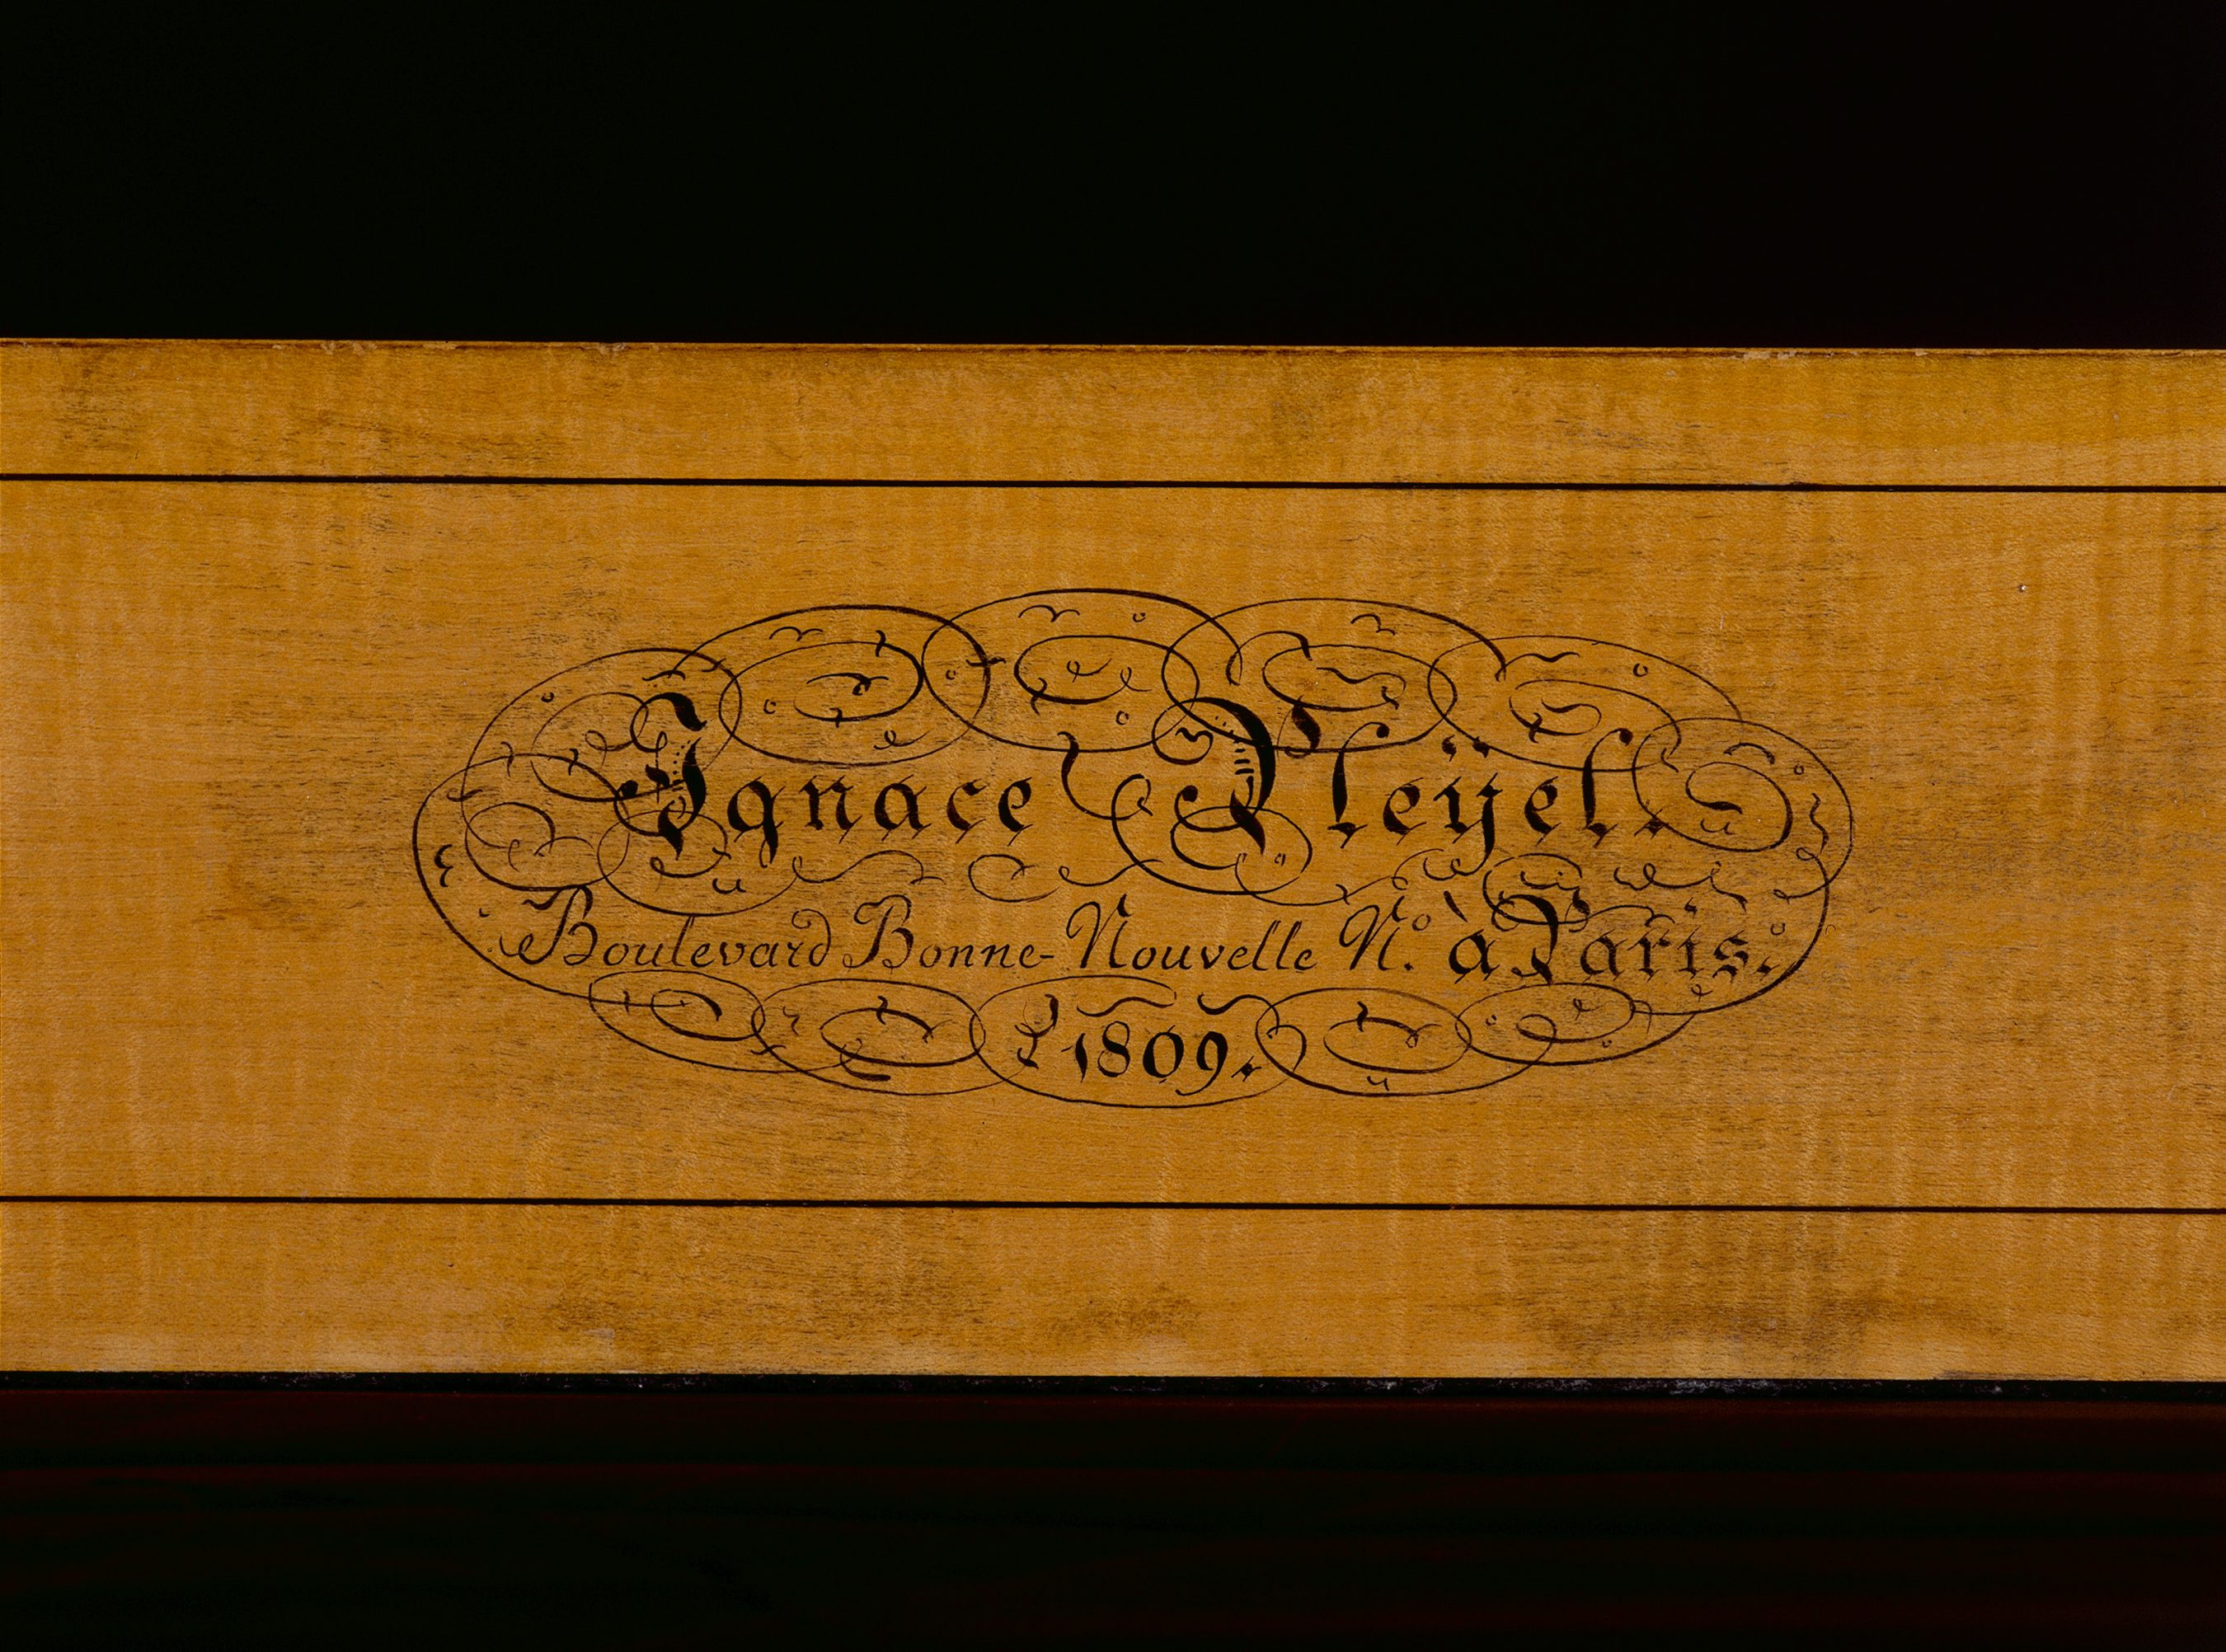 Ignace Pleÿel.
Boulevard Bonne-Nouvelle N.º à Paris.
1809.